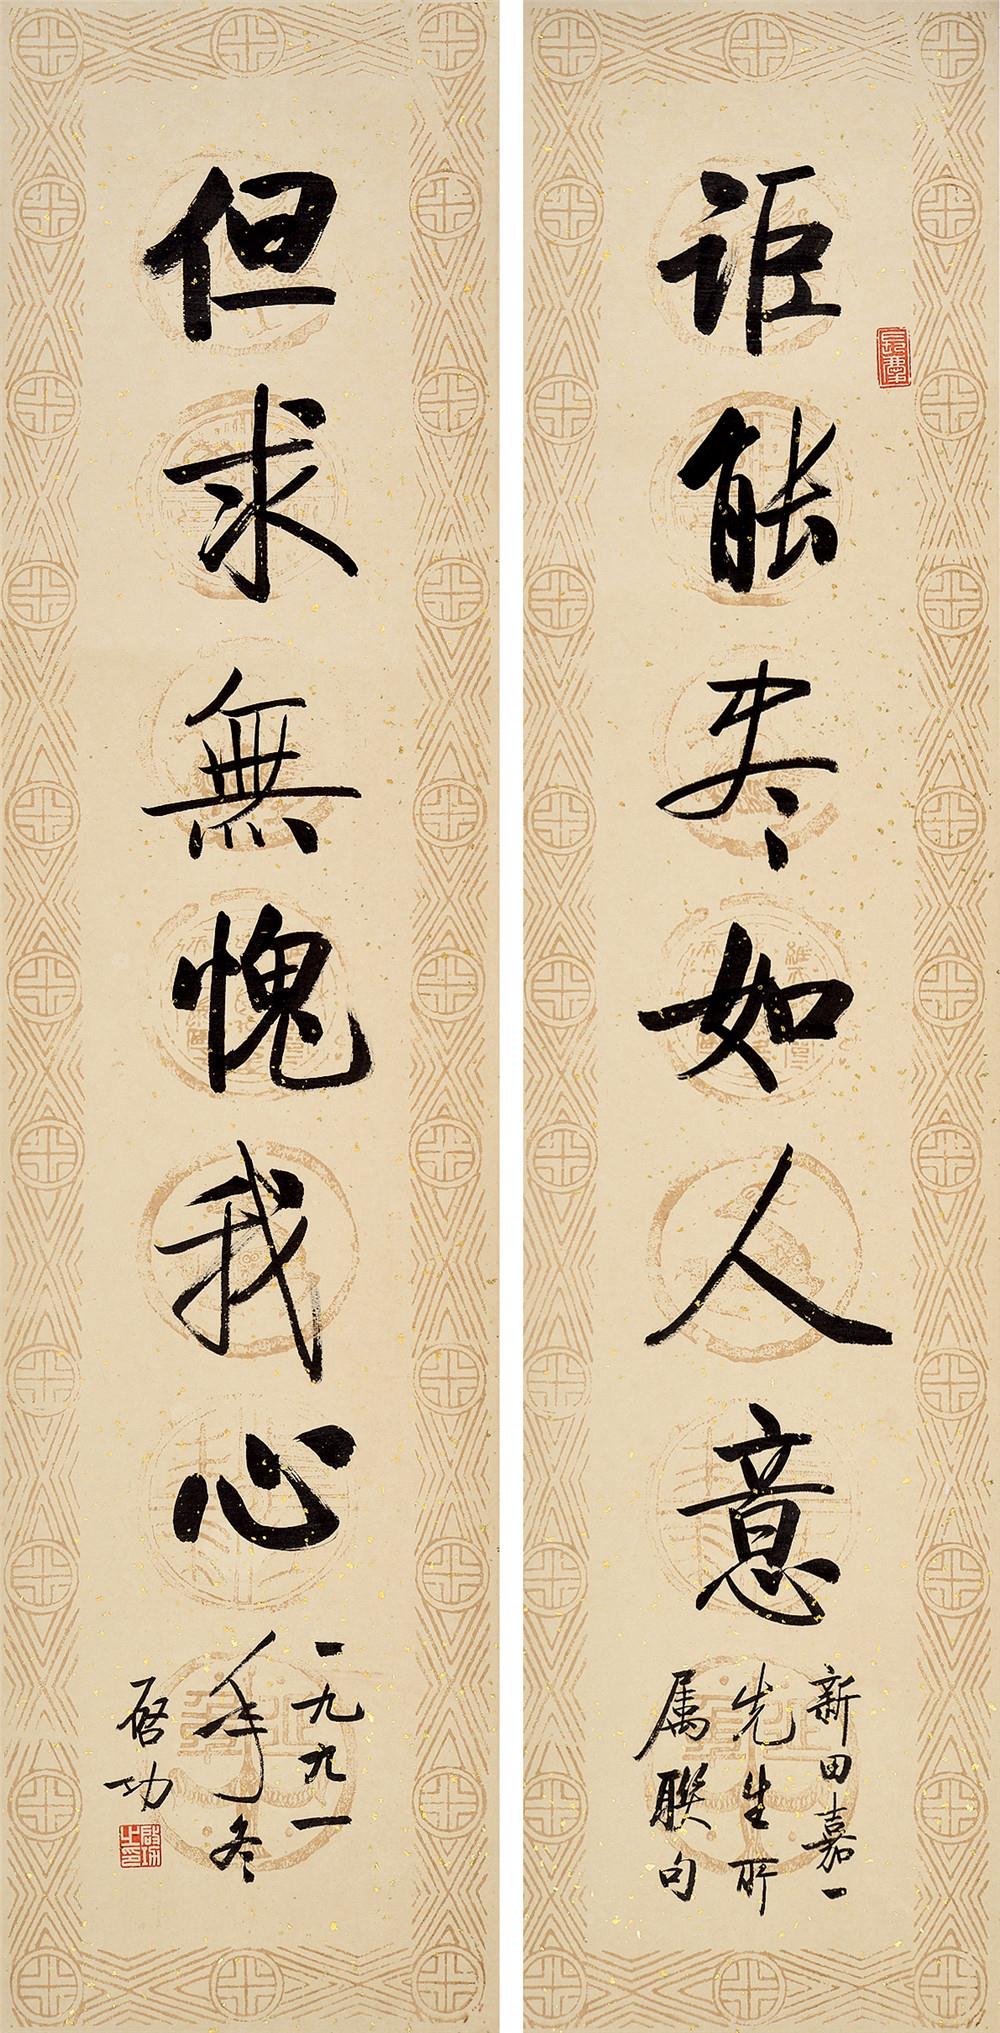 讵能尽如人意
新田嘉一
先生所
属联句
但求無愧我心
一九九一
年冬
启功